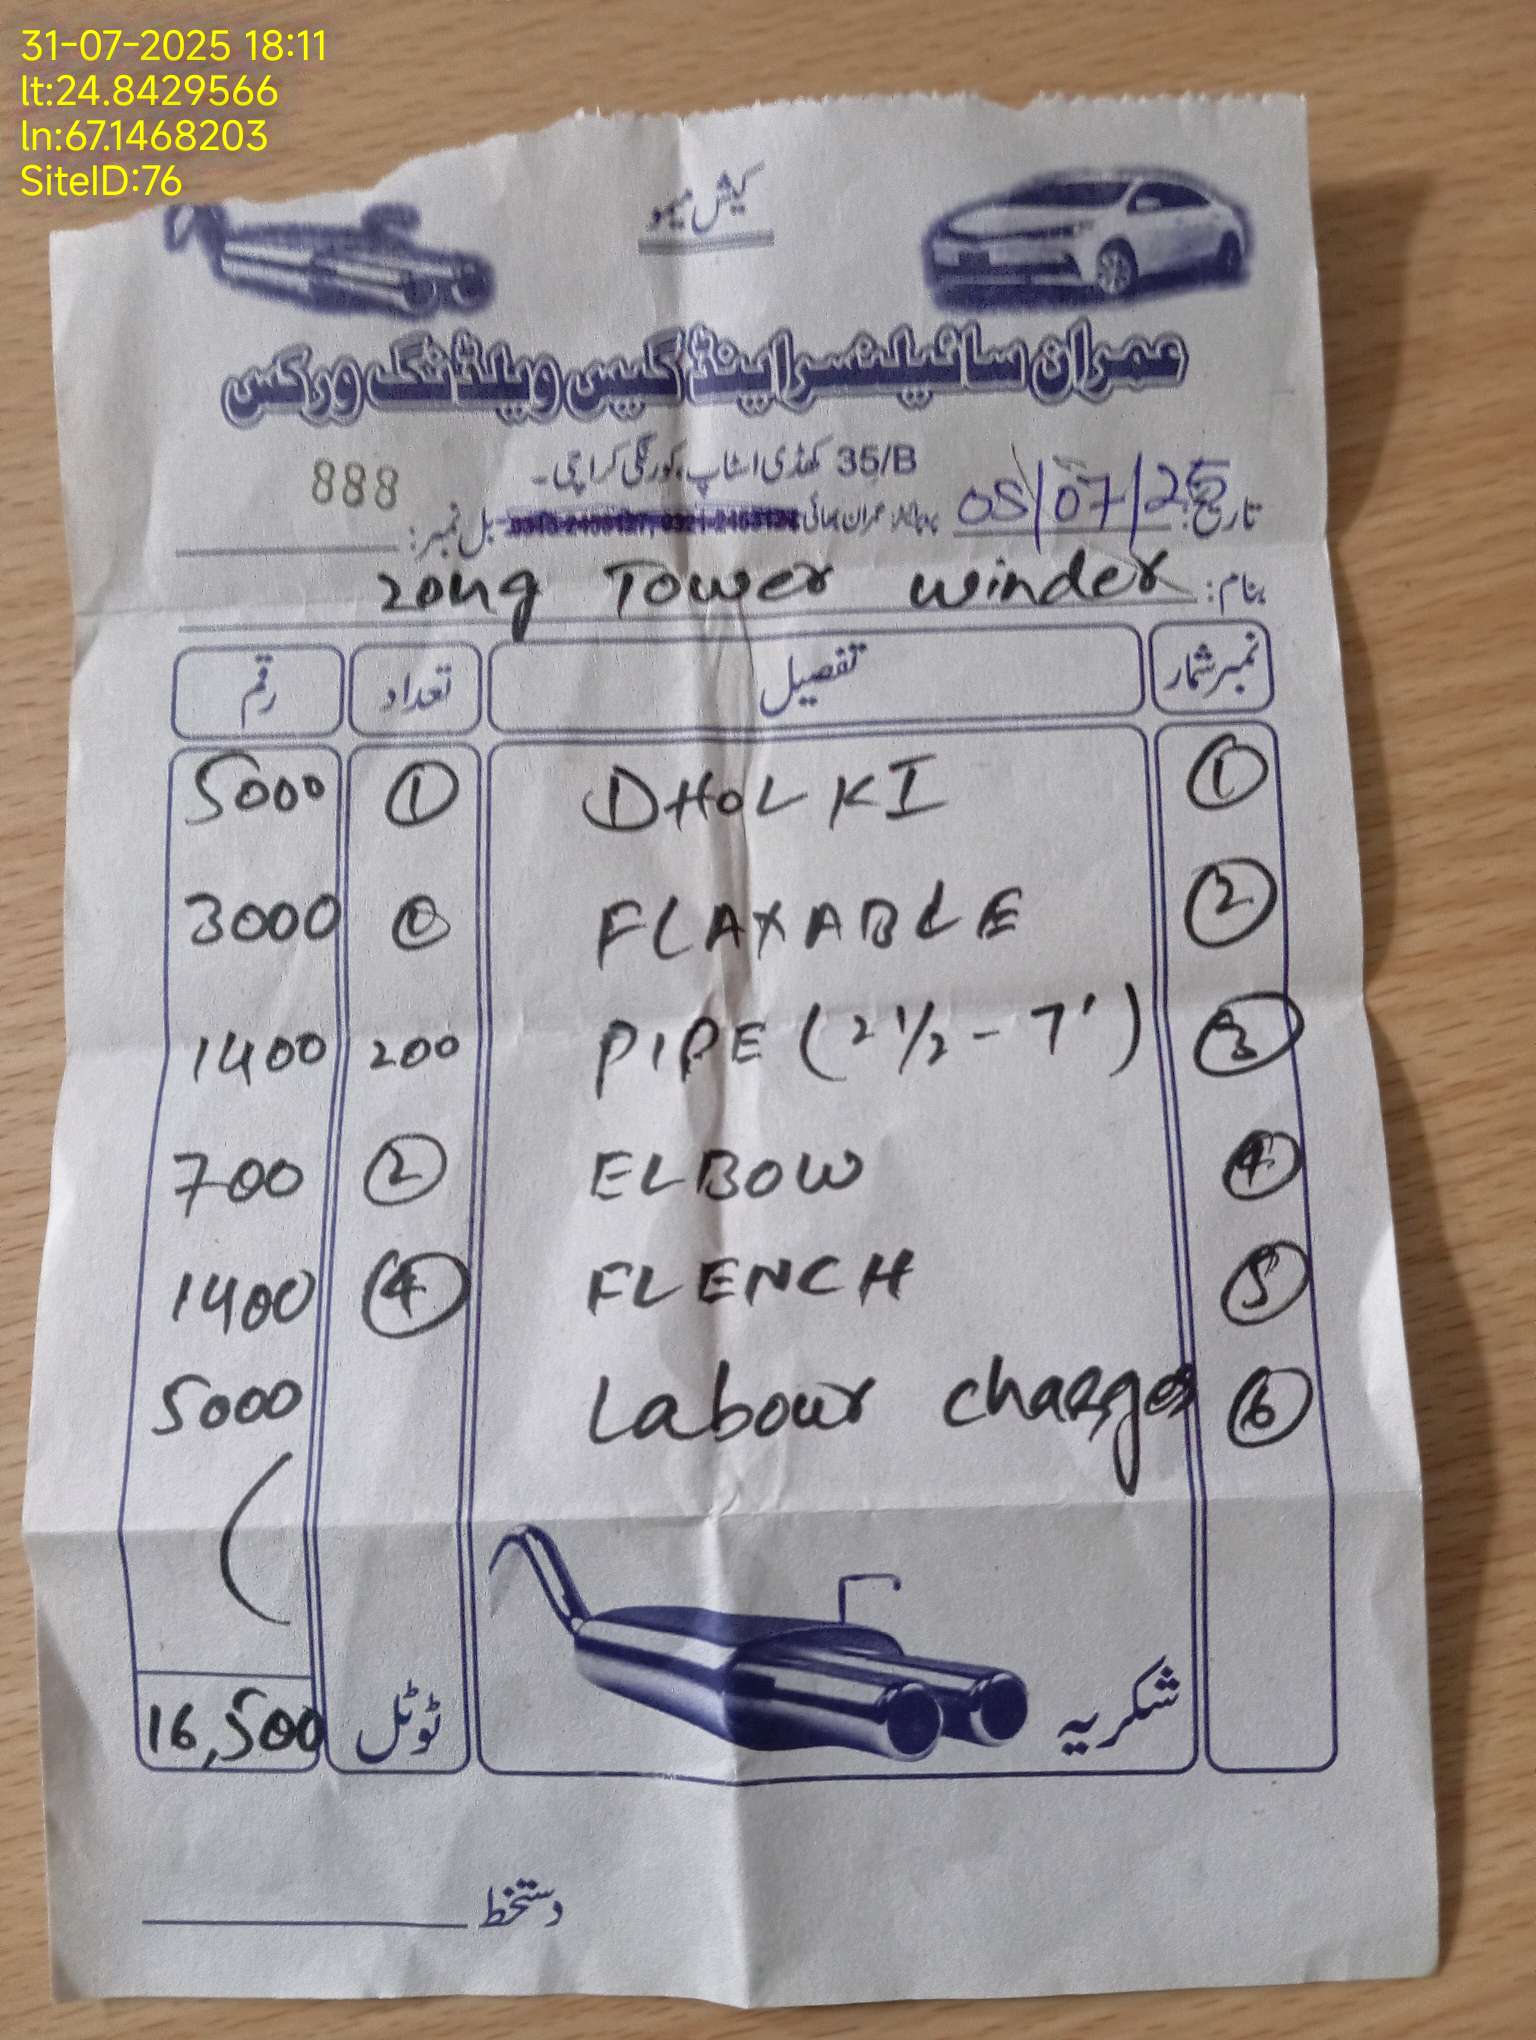 31-07-2025 18:11
lt:24.8429566
ln:67.1468203
SiteID:76
کیش میمو
عمران سائیلنسر اینڈ گیس ویلڈنگ ورکس
35/B کھڈی اسٹاپ، کورنگی کراچی۔
888
تاریخ: 05/07/25 پروپرائٹر: عمران بھائی بل نمبر:
بنام: zong Tower winder
نمبر شمار تفصیل تعداد رقم
1 DHOLKI 1 5000
2 FLAXABLE 3000
3 PIPE (2 1/2 - 7') 200 1400
4 ELBOW 2 700
5 FLENCH 4 1400
6 Labour charges 5000
شکریہ ٹوٹل 16,500
دستخط